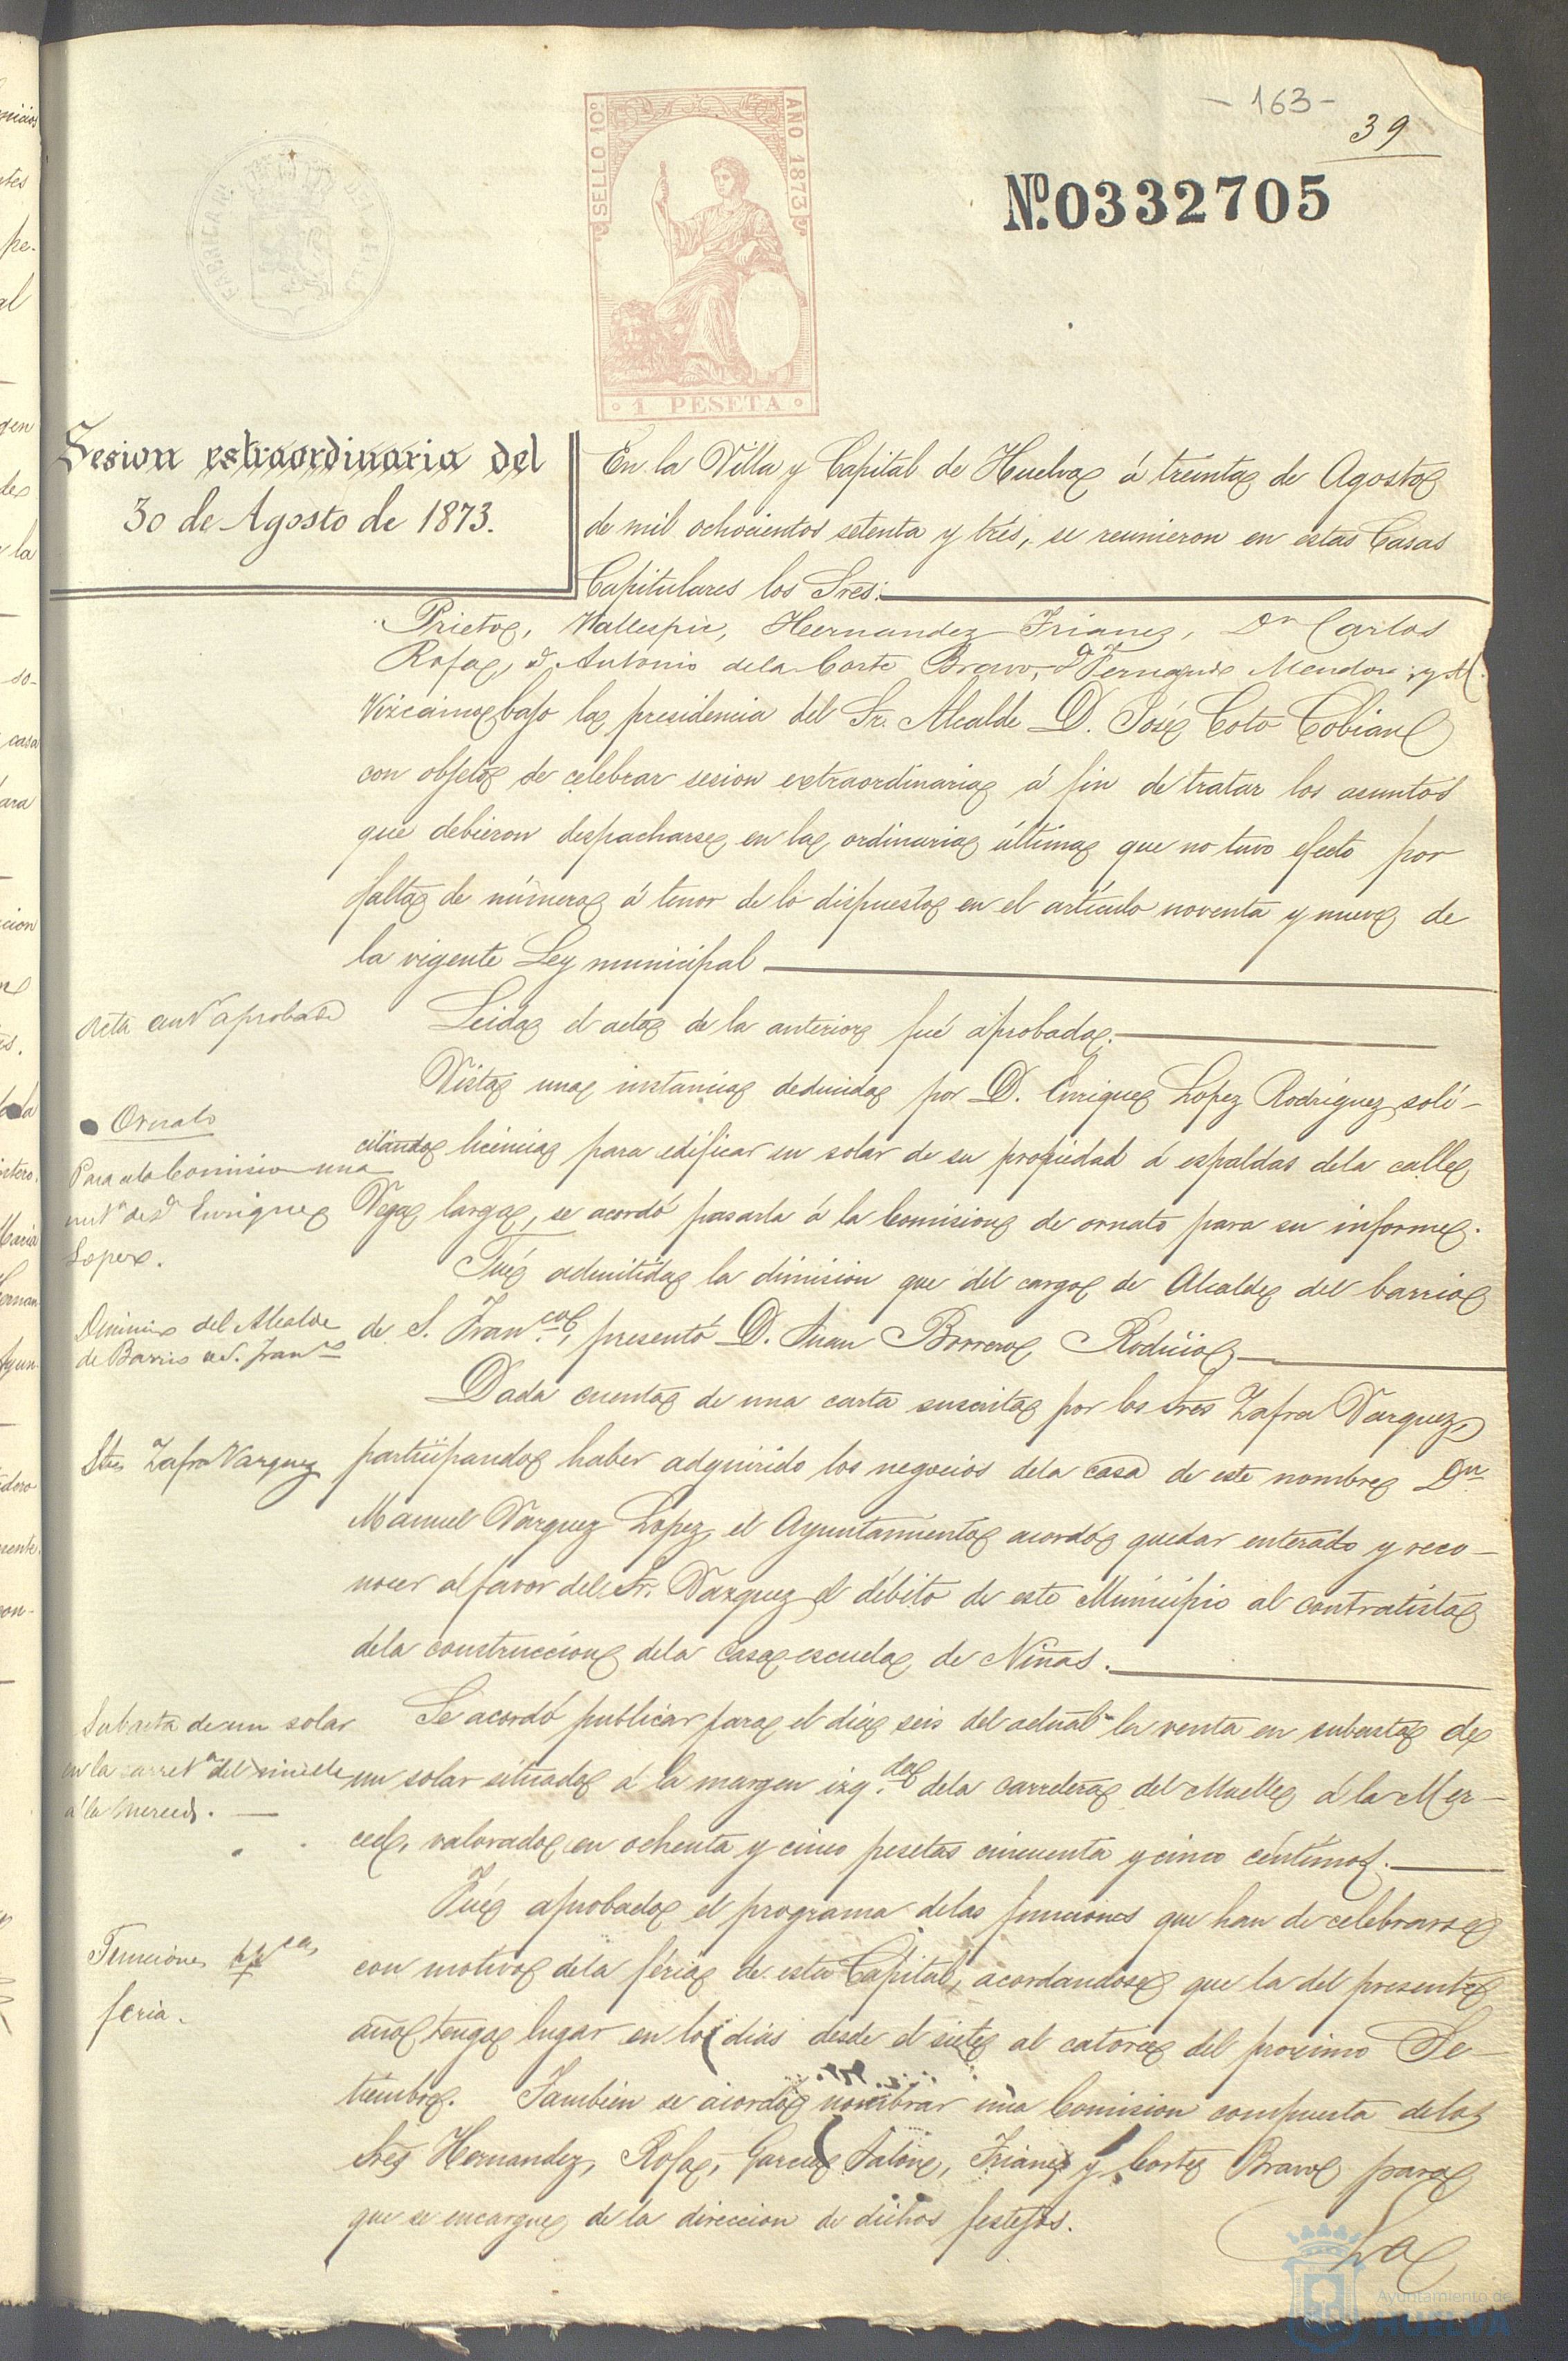 - 163 -
39
SELLO 10º
AÑO 1873
1 PESETA
Nº 0332705
Sesion estraordinaria del
30 de Agosto de 1873.
En la Villa y Capital de Huelva á treinta de Agosto
de mil ochocientos setenta y trés, se reunieron en estas Casas
Capitulares los Sres:
Prieto, Vallespin, Hernandez Irianes, Dn Carlos
Rofa, D. Antonio dela Corte Bravo, D Fernando Mendoza y M.
Vizcaino bajo la presidencia del Sr. Alcalde D. José Coto Cobian
con objeto de celebrar sesion extraordinaria á fin de tratar los asuntos
que debieron despacharse en la ordinaria última que no tuvo efecto por
falta de número á tenor de lo dispuesto en el artículo noventa y nueve de
la vigente Ley municipal
Acta antr aprobada
Leida el acta de la anterior fué aprobada.
Vista una instancia deducida por D. Enrique Lopez Rodriguez, soli-
Ornato
citando licencia para edificar un solar de su propiedad á espaldas dela calle
Para ala Comision una
Vega larga, se acordó pasarla á la Comision de ornato para su informe.
de D Enrique
Lopez.
Fué admitida la dimision que del cargo de Alcalde del barrio
Dimision del Alcalde
de Barrio de S. Franco
de S. Franco, presentó D. Juan Borrero Rodicio
Dada cuenta de una carta suscrita por los Sres Zafra Vazquez,
Sres Zafra Vazquez
participando haber adquirido los negocios dela casa de este nombre Dn
Manuel Vazquez Lopez, el Ayuntamiento acordó quedar enterado y reco-
nocer al favor del Sr. Vazquez el débito de este Municipio al contratista
dela construccion dela casa escuela de Niñas.
Subasta de un solar
Se acordó publicar para el dia seis del actual la venta en subasta de
en la carreta del muelle
un solar situado á la margen izqda dela carretera del Muelle á la Mer-
á la Merced.
ced, valorado en ochenta y cinco pesetas cincuenta y cinco céntimos.
Fué aprobado el programa delas funciones que han de celebrarse
Funciones
feria.
con motivo dela féria de esta Capital, acordandose que la del presente
año tenga lugar en los dias desde el siete al catorce del proximo Se-
tiembre. Tambien se acordó nombrar una Comision compuesta delos
Sres Hernandez, Rofa, Garcia Jalon, Irianes y Corte Bravo para
que se encargue de la direccion de dichos festejos.
La
Ayuntamiento de
HUELVA